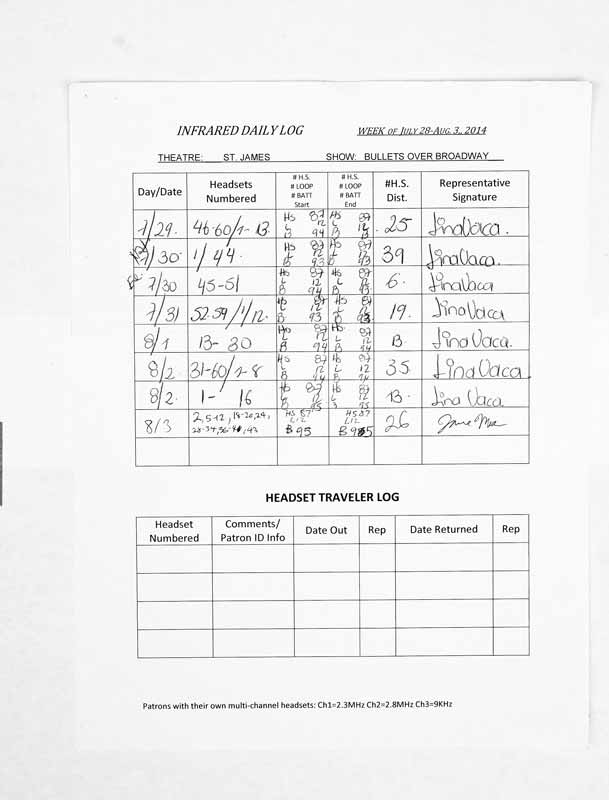 INFRARED DAILY LOG WEEK OF JULY 28-AUG 3, 2014
THEATRE: ST. JAMES SHOW: BULLETS OVER BROADWAY
Day/Date Headsets Numbered # H.S. # LOOP # BATT Start # H.S. # LOOP # BATT End #H.S. Dist. Representative Signature
7/29. 46-60/1-13 HS 87 L 12 B 94 HS 87 L 12 B 25 Lina Vaca.
7/30 1/44. HS 87 L 12 B 93 HS 87 L 12 B 93 39 Lina Vaca.
7/30 45-51 HS 87 L 12 B 94 HS 87 L 12 B 93 6. Lina Vaca
7/31 52-59/1/12. HS 87 L 12 B 93 HS 87 L 12 B 93 19. Lina Vaca
8/1 13-30 HS 87 L 12 B 94 HS. 87 L 12 B 94 13. Lina Vaca.
8/2. 31-60/1-8 HS 87 L 12 B 94 HS 87 L 12 B 94 35 Lina Vaca
8/2. 1- 16 HS 87 L 12 B 95 HS 87 L 12 95 13. Lina Vaca
8/3 2,5-12, 18-20,24, HS 87 L12 B 95 HS 87 L12 B 95 26
HEADSET TRAVELER LOG
Headset Numbered Comments/ Patron ID Info Date Out Rep Date Returned Rep
Patrons with their own multi-channel headsets: Ch1=2.3MHz Ch2=2.8MHz Ch3=9KHz